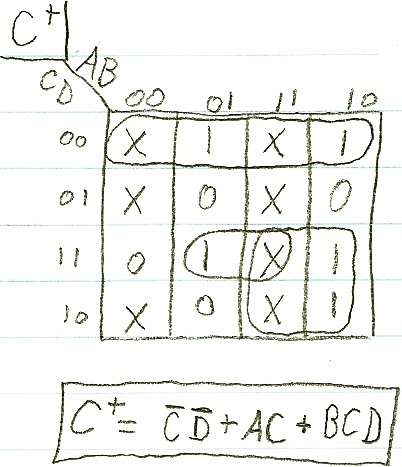 C⁺
AB
CD 00 01 11 10
00 X 1 X 1
01 X 0 X 0
11 0 1 X 1
10 X 0 X 1
C⁺ = C̅ D̅ + AC + BCD